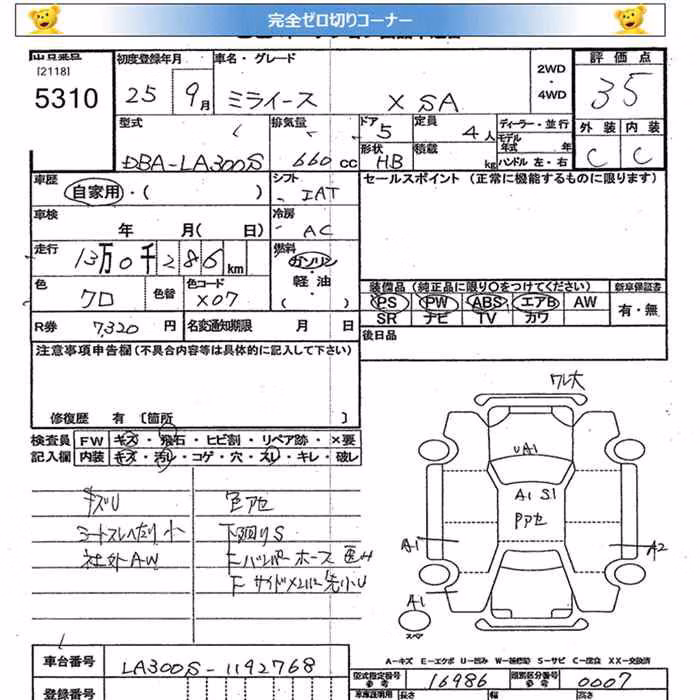 完全ゼロ切りコーナー
[2118]
5310
初度登録年月 車名・グレード 2WD・4WD 評価点
25 9月 ミライース X SA 35
型式 排気量 ドア 定員 ディーラー・並行 外装 内装
5 4人 モデル年式 年
DBA-LA300S 660cc 形状 積載 kg ハンドル 左・右 C C
HB
車歴 シフト セールスポイント (正常に機能するものに限ります)
自家用・( ) IAT
車検 冷房
年 月(日) AC
走行 燃料
13万0千286km ガソリン・軽油・( )
色 色替 色コード 装備品(純正品に限り〇をつけてください) 新車保証書
クロ X07 PS PW ABS エアB AW 有・無
SR ナビ TV カワ
R券 7,320円 名変通知期限 月 日 後日品
注意事項申告欄(不具合内容等は具体的に記入して下さい)
修復歴 有 [箇所 ]
検査員 FW キズ・飛石・ヒビ割・リペア跡・×要
記入欄 内装 キズ・汚レ・コゲ・穴・スレ・キレ・破レ
キズU 色アセ
シートスレへたり小 下廻りS
社外AW Fバンパーホース
Fサイドメンバー先小U
ワレ大
UA1
A1 S1
Pアセ
A1 A2
A1
スペア
A-キズ E-エクボ U-凹み W-補修跡 S-サビ C-腐食 XX-交換済
車台番号 LA300S-1192768 型式指定番号 参考 16986 類別区分番号 参考 0007
登録番号 車庫証明用 長さ 幅 高さ